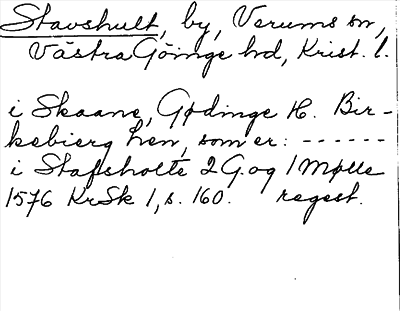 Stavshult, by, Verums sn,
Västra Göinge hd, Krist. l.
i Skaane, Gødinge H. Bir-
kebierg Len, som er: ------
i Stafsholte 2 G. og 1 Mølle
1576 KrSk 1, s. 160. regest.